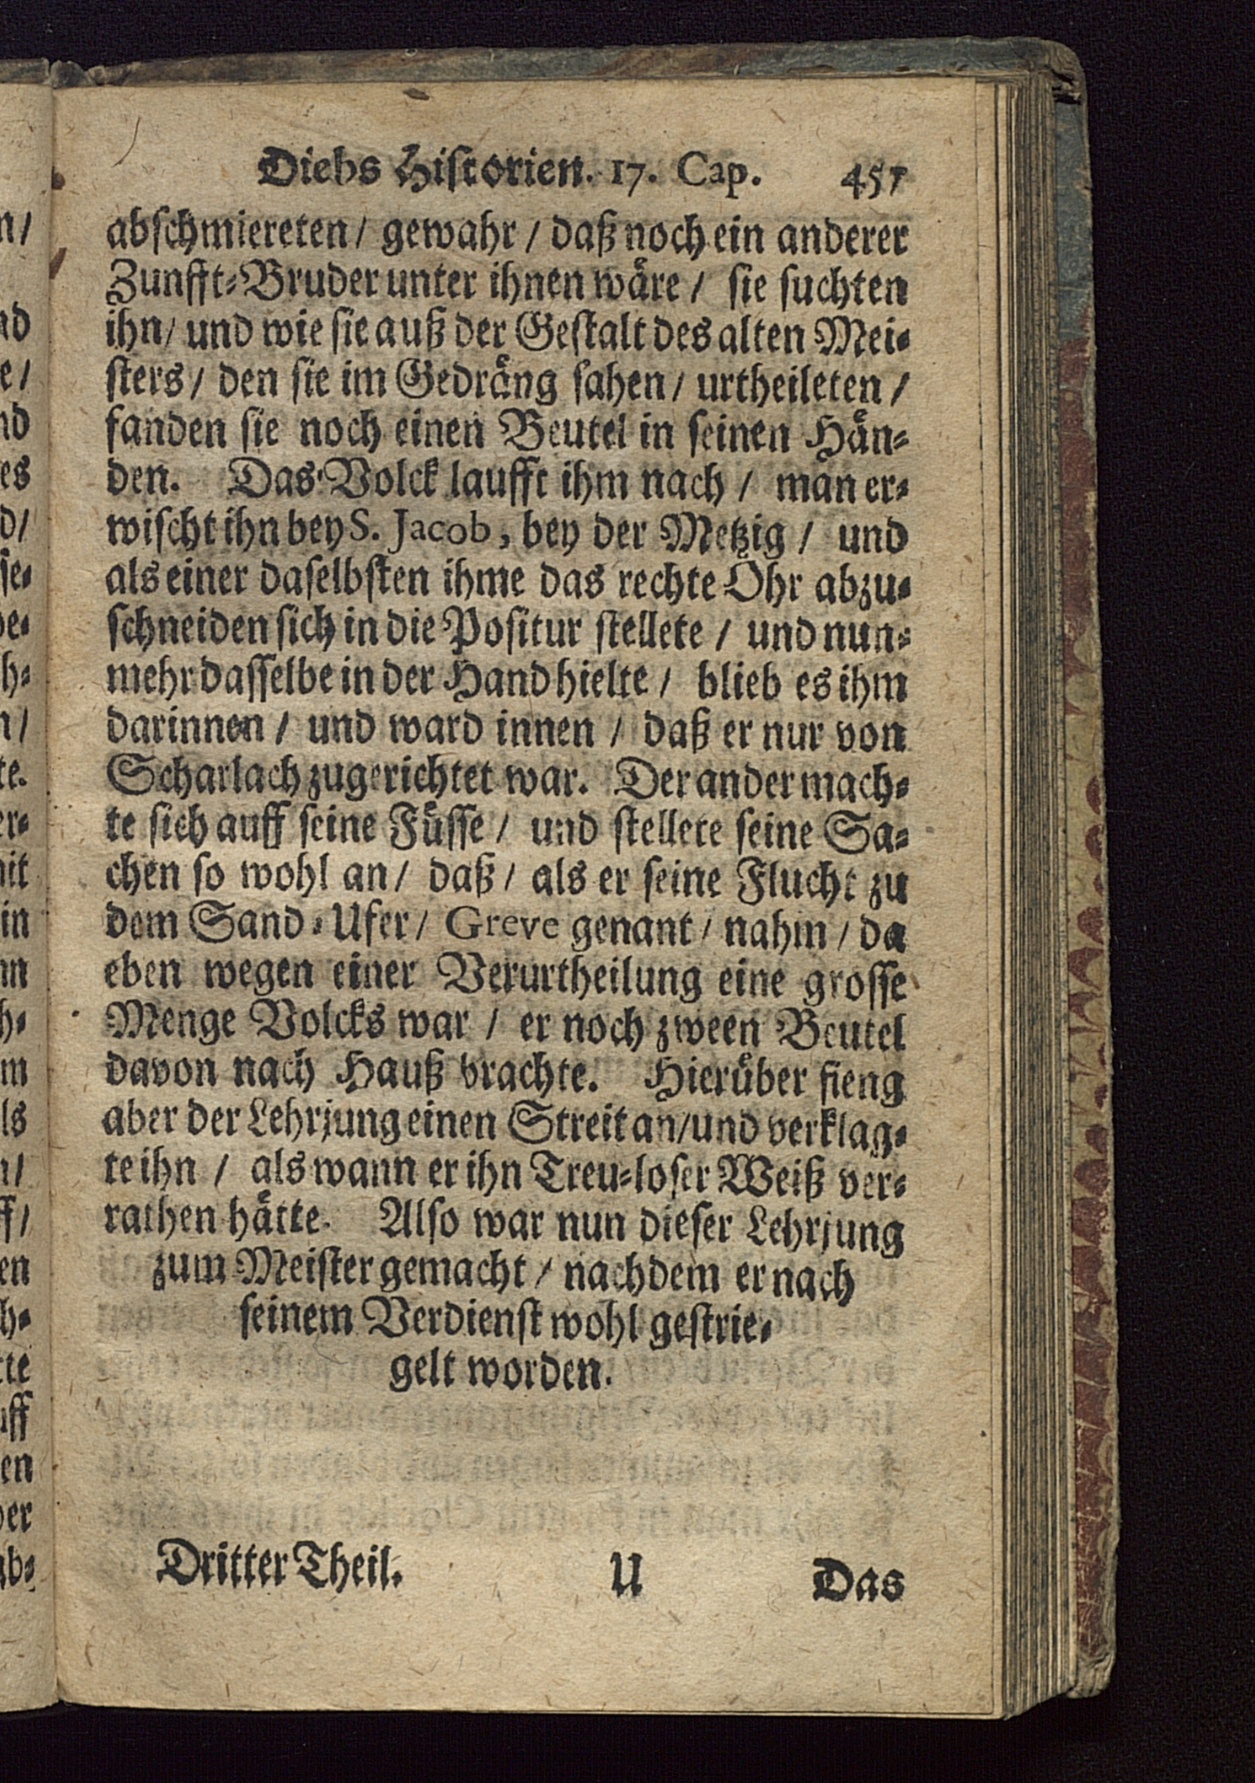 Diebs Historien. 17. Cap. 457
abschmiereten / gewahr / daß noch ein anderer
Zunfft-Bruder unter ihnen wäre / sie suchten
ihn / und wie sie auß der Gestalt des alten Mei-
sters / den sie im Gedräng sahen / urtheileten /
fanden sie noch einen Beutel in seinen Hän-
den. Das Volck laufft ihm nach / man er-
wischt ihn bey S. Jacob, bey der Metzig / und
als einer daselbsten ihme das rechte Ohr abzu-
schneiden sich in die Positur stellete / und nun-
mehr dasselbe in der Hand hielte / blieb es ihm
darinnen / und ward innen / daß er nur von
Scharlach zugerichtet war. Der ander mach-
te sich auff seine Füsse / und stellete seine Sa-
chen so wohl an / daß / als er seine Flucht zu
dem Sand-Ufer / Greve genant / nahm / da
eben wegen einer Verurtheilung eine grosse
Menge Volcks war / er noch zween Beutel
davon nach Hauß brachte. Hierüber fieng
aber der Lehrjung einen Streit an / und verklag-
te ihn / als wann er ihn Treu-loser Weiß ver-
rathen hätte. Also war nun dieser Lehrjung
zum Meister gemacht / nachdem er nach
seinem Verdienst wohl gestrie-
gelt worden.
Dritter Theil. U Das